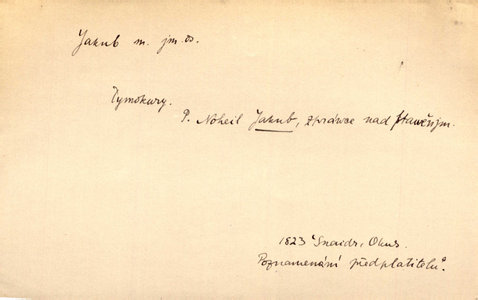 Jakub m. jm. os.
Dymokury.
P. Noheil Jakub, zprávce nad
1823 Šnaidr, Okus.
Poznamenání předplatitelů.